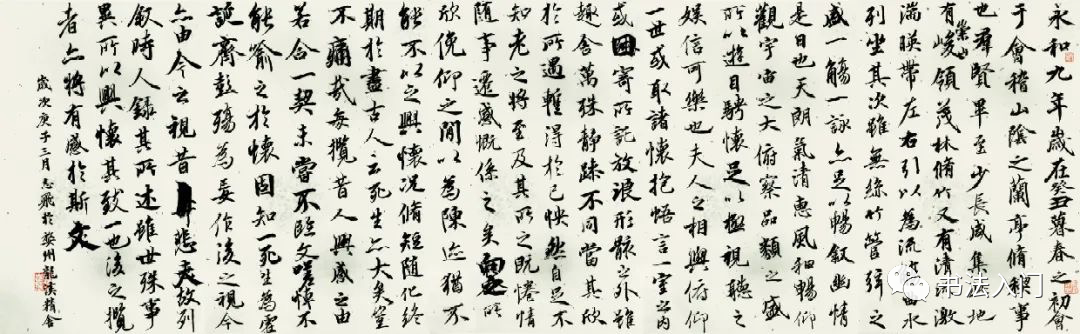 永和九年歲在癸丑暮春之初會
于會稽山陰之蘭亭脩禊事
也羣賢畢至少長咸集此地
有崇山峻領茂林脩竹又有清流激
湍暎帶左右引以為流觴曲水
列坐其次雖無絲竹管弦之
盛一觴一詠亦足以暢叙幽情
是日也天朗氣清惠風和暢仰
觀宇宙之大俯察品類之盛
所以遊目騁懷足以極視聽之
娛信可樂也夫人之相與俯仰
一世或取諸懷抱悟言一室之內
或因寄所託放浪形骸之外雖
趣舍萬殊靜躁不同當其欣
於所遇暫得於己怏然自足不
知老之將至及其所之既惓情
隨事遷感慨係之矣向之所
欣俛仰之間以為陳迹猶不
能不以之興懷況脩短隨化終
期於盡古人云死生亦大矣豈
不痛哉每攬昔人興感之由
若合一契未嘗不臨文嗟悼不
能喻之於懷固知一死生為虛
誕齊彭殤為妄作後之視今
亦由今之視昔悲夫故列
叙時人錄其所述雖世殊事
異所以興懷其致一也後之攬
者亦將有感於斯文
歲次庚子三月志飛於婺州龍精舍
书法入门